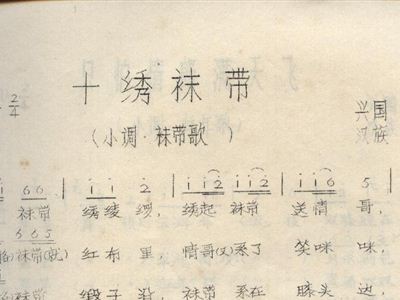 2/4
十绣袜带
(小调·袜带歌)
兴国
汉族
i 66 | i i 2 | i i 2 i i 2 | i i 6 5
袜带 绣绫 绸, 绣起 袜带 送情 哥,
665
袜带(就) 红布 里, 情哥(又)系了 笑咪 咪,
缎子 袜带 系在 膝头 边,